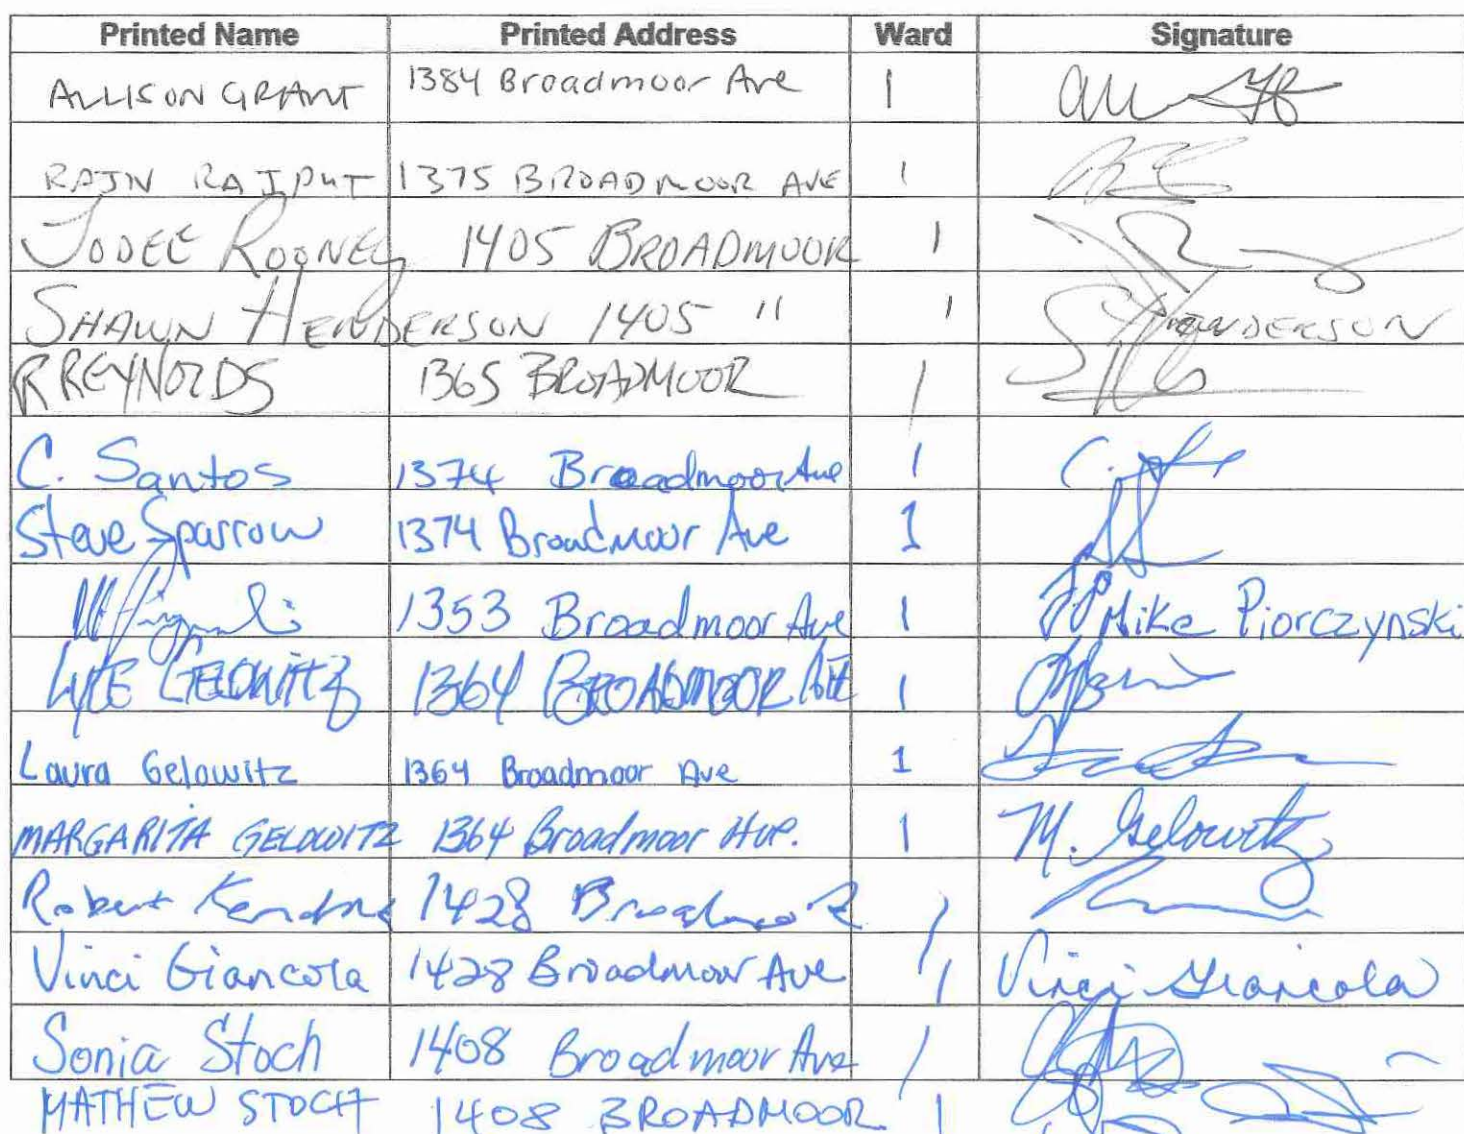 Printed Name Printed Address Ward Signature
ALLISON GRANT 1384 Broadmoor Ave 1
RAJN RAJPUT 1375 BROADMOOR AVE 1
JODEE ROONEY 1405 BROADMOOR 1
SHAWN HENDERSON 1405 " 1 S HENDERSON
R REYNOLDS 1365 BROADMOOR 1
C. Santos 1374 Broadmoor Ave 1
Steve Sparrow 1374 Broadmoor Ave 1
1353 Broadmoor Ave 1 Mike Piorczynski
LYLE GELOWITZ 1364 BROADMOOR AVE 1
Laura Gelowitz 1364 Broadmoor Ave 1
MARGARITA GELOWITZ 1364 Broadmoor Ave. 1 M. Gelowitz
Robert 1428 Broadmoor 1
Vinci Giancola 1428 Broadmoor Ave 1 Vinci Giancola
Sonia Stoch 1408 Broadmoor Ave 1
MATHEW STOCH 1408 BROADMOOR 1